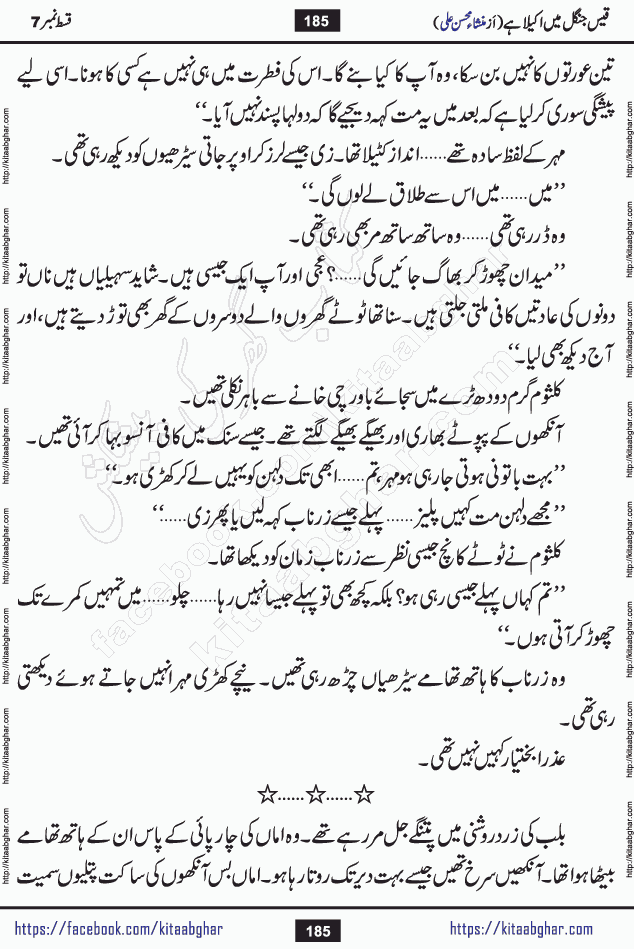 قیس جنگل میں اکیلا ہے (از منشاء محسن علی) 185 قسط نمبر 7
تین عورتوں کا نہیں بن سکا، وہ آپ کا کیا بنے گا۔ اس کی فطرت میں ہی نہیں ہے کسی کا ہونا۔ اسی لیے
پیشگی سوری کر لیا ہے کہ بعد میں یہ مت کہہ دیجیے گا کہ دولہا پسند نہیں آیا۔‘‘
مہر کے لفظ سادہ تھے......انداز کٹیلا تھا۔ زی جیسے لرز کر اوپر جاتی سیڑھیوں کو دیکھ رہی تھی۔
’’میں......میں اس سے طلاق لے لوں گی۔‘‘
وہ ڈر رہی تھی......وہ ساتھ ساتھ مر بھی رہی تھی۔
’’میدان چھوڑ کر بھاگ جائیں گی......؟ عجی اور آپ ایک جیسی ہیں۔ شاید سہیلیاں ہیں ناں تو
دونوں کی عادتیں کافی ملتی جلتی ہیں۔ سنا تھا ٹوٹے گھروں والے دوسروں کے گھر بھی توڑ دیتے ہیں، اور
آج دیکھ بھی لیا۔‘‘
کلثوم گرم دودھ ٹرے میں سجائے باورچی خانے سے باہر نکلی تھیں۔
آنکھوں کے پپوٹے بھاری اور بھیگے بھیگے لگتے تھے۔ جیسے سنک میں کافی آنسو بہا کر آئی تھیں۔
’’بہت باتونی ہوتی جا رہی ہو مہر تم......ابھی تک دلہن کو یہیں لے کر کھڑی ہو۔‘‘
’’مجھے دلہن مت کہیں پلیز......پہلے جیسے زرناب کہہ لیں یا پھر زی......‘‘
کلثوم نے ٹوٹے کانچ جیسی نظر سے زرناب زمان کو دیکھا تھا۔
’’تم کہاں پہلے جیسی رہی ہو؟ بلکہ کچھ بھی تو پہلے جیسا نہیں رہا......چلو......میں تمہیں کمرے تک
چھوڑ کر آتی ہوں۔‘‘
وہ زرناب کا ہاتھ تھامے سیڑھیاں چڑھ رہی تھیں۔ نیچے کھڑی مہر انہیں جاتے ہوئے دیکھتی
رہی تھی۔
عذرا بختیار کہیں نہیں تھی۔
☆......☆......☆
بلب کی زرد روشنی میں پتنگے جل مر رہے تھے۔ وہ اماں کی چارپائی کے پاس ان کے ہاتھ تھامے
بیٹھا ہوا تھا۔ آنکھیں سرخ تھیں جیسے بہت دیر تک روتا رہا ہو۔ اماں بس آنکھوں کی ساکت پتلیوں سمیت
https://facebook.com/kitaabghar 185 https://kitaabghar.com
http://kitaabghar.com http://kitaabghar.com http://kitaabghar.com http://kitaabghar.com http://kitaabghar.com http://kitaabghar.com http://kitaabghar.com http://kitaabghar.com
http://kitaabghar.com http://kitaabghar.com http://kitaabghar.com http://kitaabghar.com http://kitaabghar.com http://kitaabghar.com http://kitaabghar.com http://kitaabghar.com
کتاب گھر کی پیشکش
facebook.com/kitaabghar
kitaabghar.com